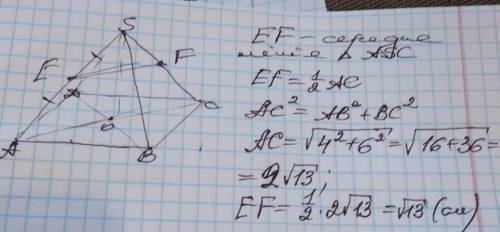 S
E
F
D
C
O
A
B
EF – середня
лінія в ASC
EF = 1/2 AC
AC² = AB² + BC²
AC = √(4² + 6²) = √(16 + 36) =
= 2√13;
EF = 1/2 · 2√13 = √13 (см)